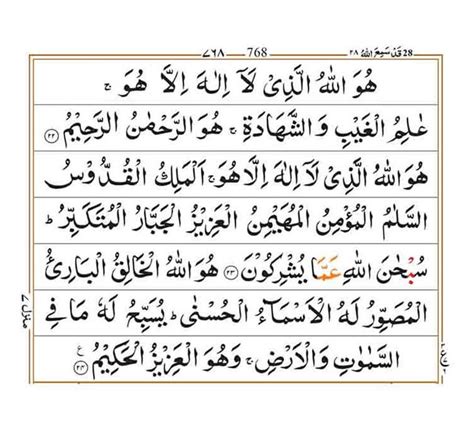 ٧٦٨ 768 قَدْ سَمِعَ اللهُ ٢٨ 28
هُوَ اللهُ الَّذِیْ لَاۤ اِلٰهَ اِلَّا هُوَ ۚ
عٰلِمُ الْغَیْبِ وَالشَّهَادَةِ ۚ هُوَ الرَّحْمٰنُ الرَّحِیْمُ ﴿۲۲﴾
هُوَ اللهُ الَّذِیْ لَاۤ اِلٰهَ اِلَّا هُوَ ۚ اَلْمَلِكُ الْقُدُّوْسُ
السَّلٰمُ الْمُؤْمِنُ الْمُهَیْمِنُ الْعَزِیْزُ الْجَبَّارُ الْمُتَكَبِّرُ ؕ
سُبْحٰنَ اللهِ عَمَّا یُشْرِكُوْنَ ﴿۲۳﴾ هُوَ اللهُ الْخَالِقُ الْبَارِئُ
الْمُصَوِّرُ لَهُ الْاَسْمَآءُ الْحُسْنٰی ؕ یُسَبِّحُ لَهٗ مَا فِی
السَّمٰوٰتِ وَالْاَرْضِ ۚ وَهُوَ الْعَزِیْزُ الْحَكِیْمُ ﴿۲۴﴾ ع
منزل ٧